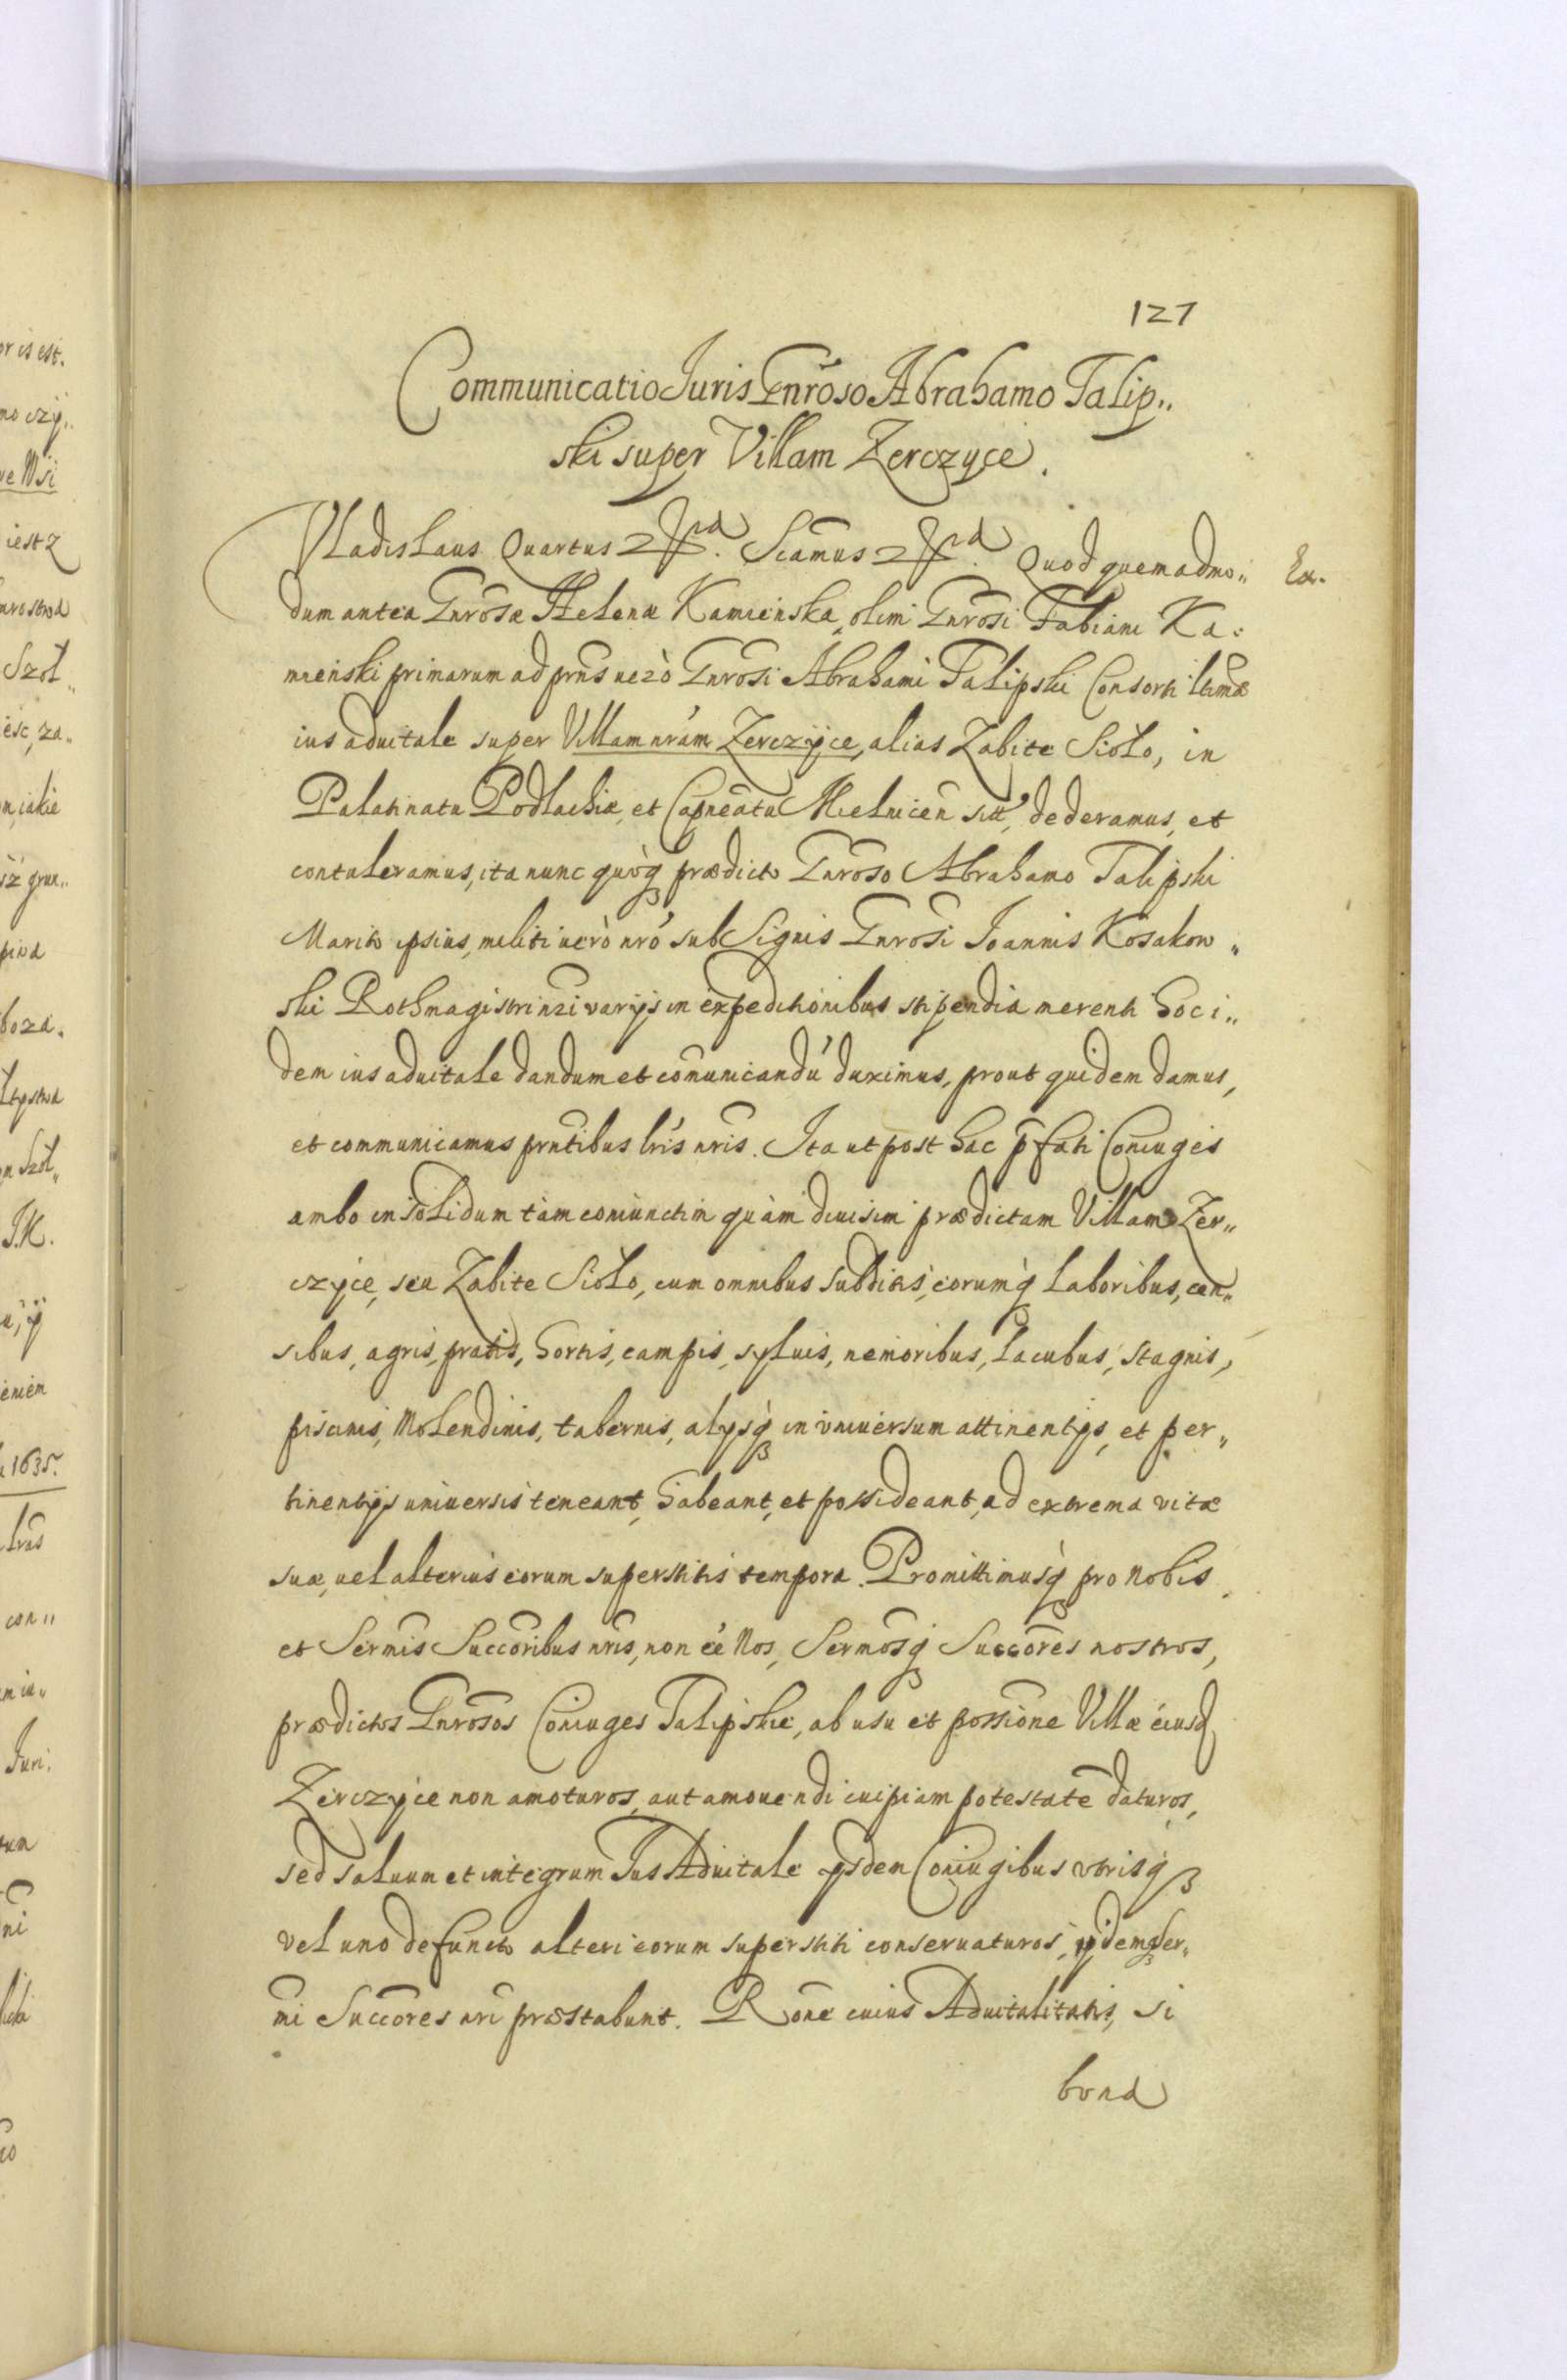 127
Communicatio Juris Gnroso Abrahamo Talip„
ski super Villam Zerczyce.
Vladislaus Quartus Sciamus Quod quemadmo„
dum antea Gnrosæ Helenæ Kamienska, olim Gnrosi Fabiani Ka„
mienski primarum ad prns uerò Gnrosi Abrahami Talipski Consorti ltimæ
ius aduitale super Villam nram Zerczyce, alias Zabite Sioło, in
Palatinatu Podlachiæ, et Capneatu Mielnicen sit, dederamus, et
contuleramus, ita nunc quoq prædicto Gnroso Abrahamo Talipski
Marito ipsius, militi uerò nro sub Signis Gnrosi Joannis Kosakow„
ski Rothmagistri nri varijs in expeditionibus stipendia merenti hoc i„
dem ius aduitale dandum et comunicandu duximus, prout quidem damus,
et communicamus prntibus lris nris. Ita ut post hac pfati Coniuges
ambo in solidum tàm coniunctim quàm diuisim prædictam Villam Zer„
czyce, seu Zabite Sioło, cum omnibus subditis, eorumq laboribus, cen„
sibus, agris, pratis, hortis, campis, syluis, nemoribus, lacubus, stagnis,
piscinis, Molendinis, tabernis, alysq in vniuersum attinentijs, et per„
tinentijs uniuersis teneant, habeant, et possideant, ad extrema vitæ
suæ, uel alterius eorum superstitis tempora. Promittimusq pro Nobis
et Sermis Succoribus nris, non ee Nos, Sermosq Succores nostros,
prædictos Gnrosos Coniuges Talipskie, ab usu et possione Villæ eiusd
Zerczyce non amoturos, aut amouendi cuipiam potestate daturos,
sed saluum et integrum Jus Aduitale ijsdem Coniugibus vtrisq
vel uno defuncto alteri eorum superstiti conseruaturos, ijdemq Ser„
mi Succores nri præstabunt. Rone cuius Aduitalitatis, si
bona